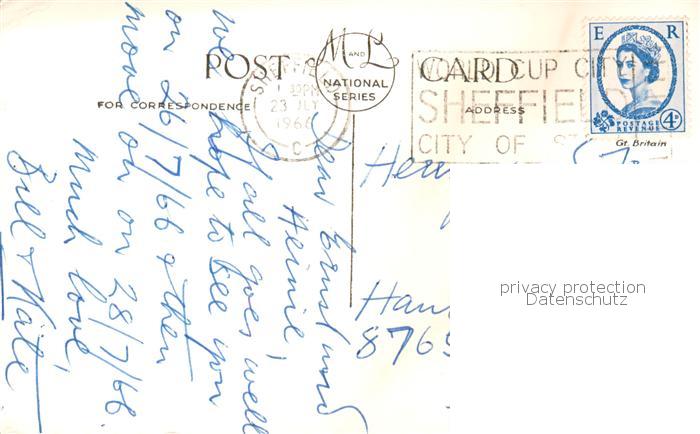 POST CARD
M AND L
NATIONAL
SERIES
FOR CORRESPONDENCE
ADDRESS
SHEFFIELD
PM
23 JLY
1966
C
WORLD CUP CITY
SHEFFIELD
CITY OF
E R
POSTAGE
REVENUE
4D
Gt. Britain
Dear Ernst und
Hennie,
If all goes well
we hope to see you
on 26/7/66 & then
move on on 28/7/66.
Much love,
Bill & Kate
Han
8765
privacy protection
Datenschutz